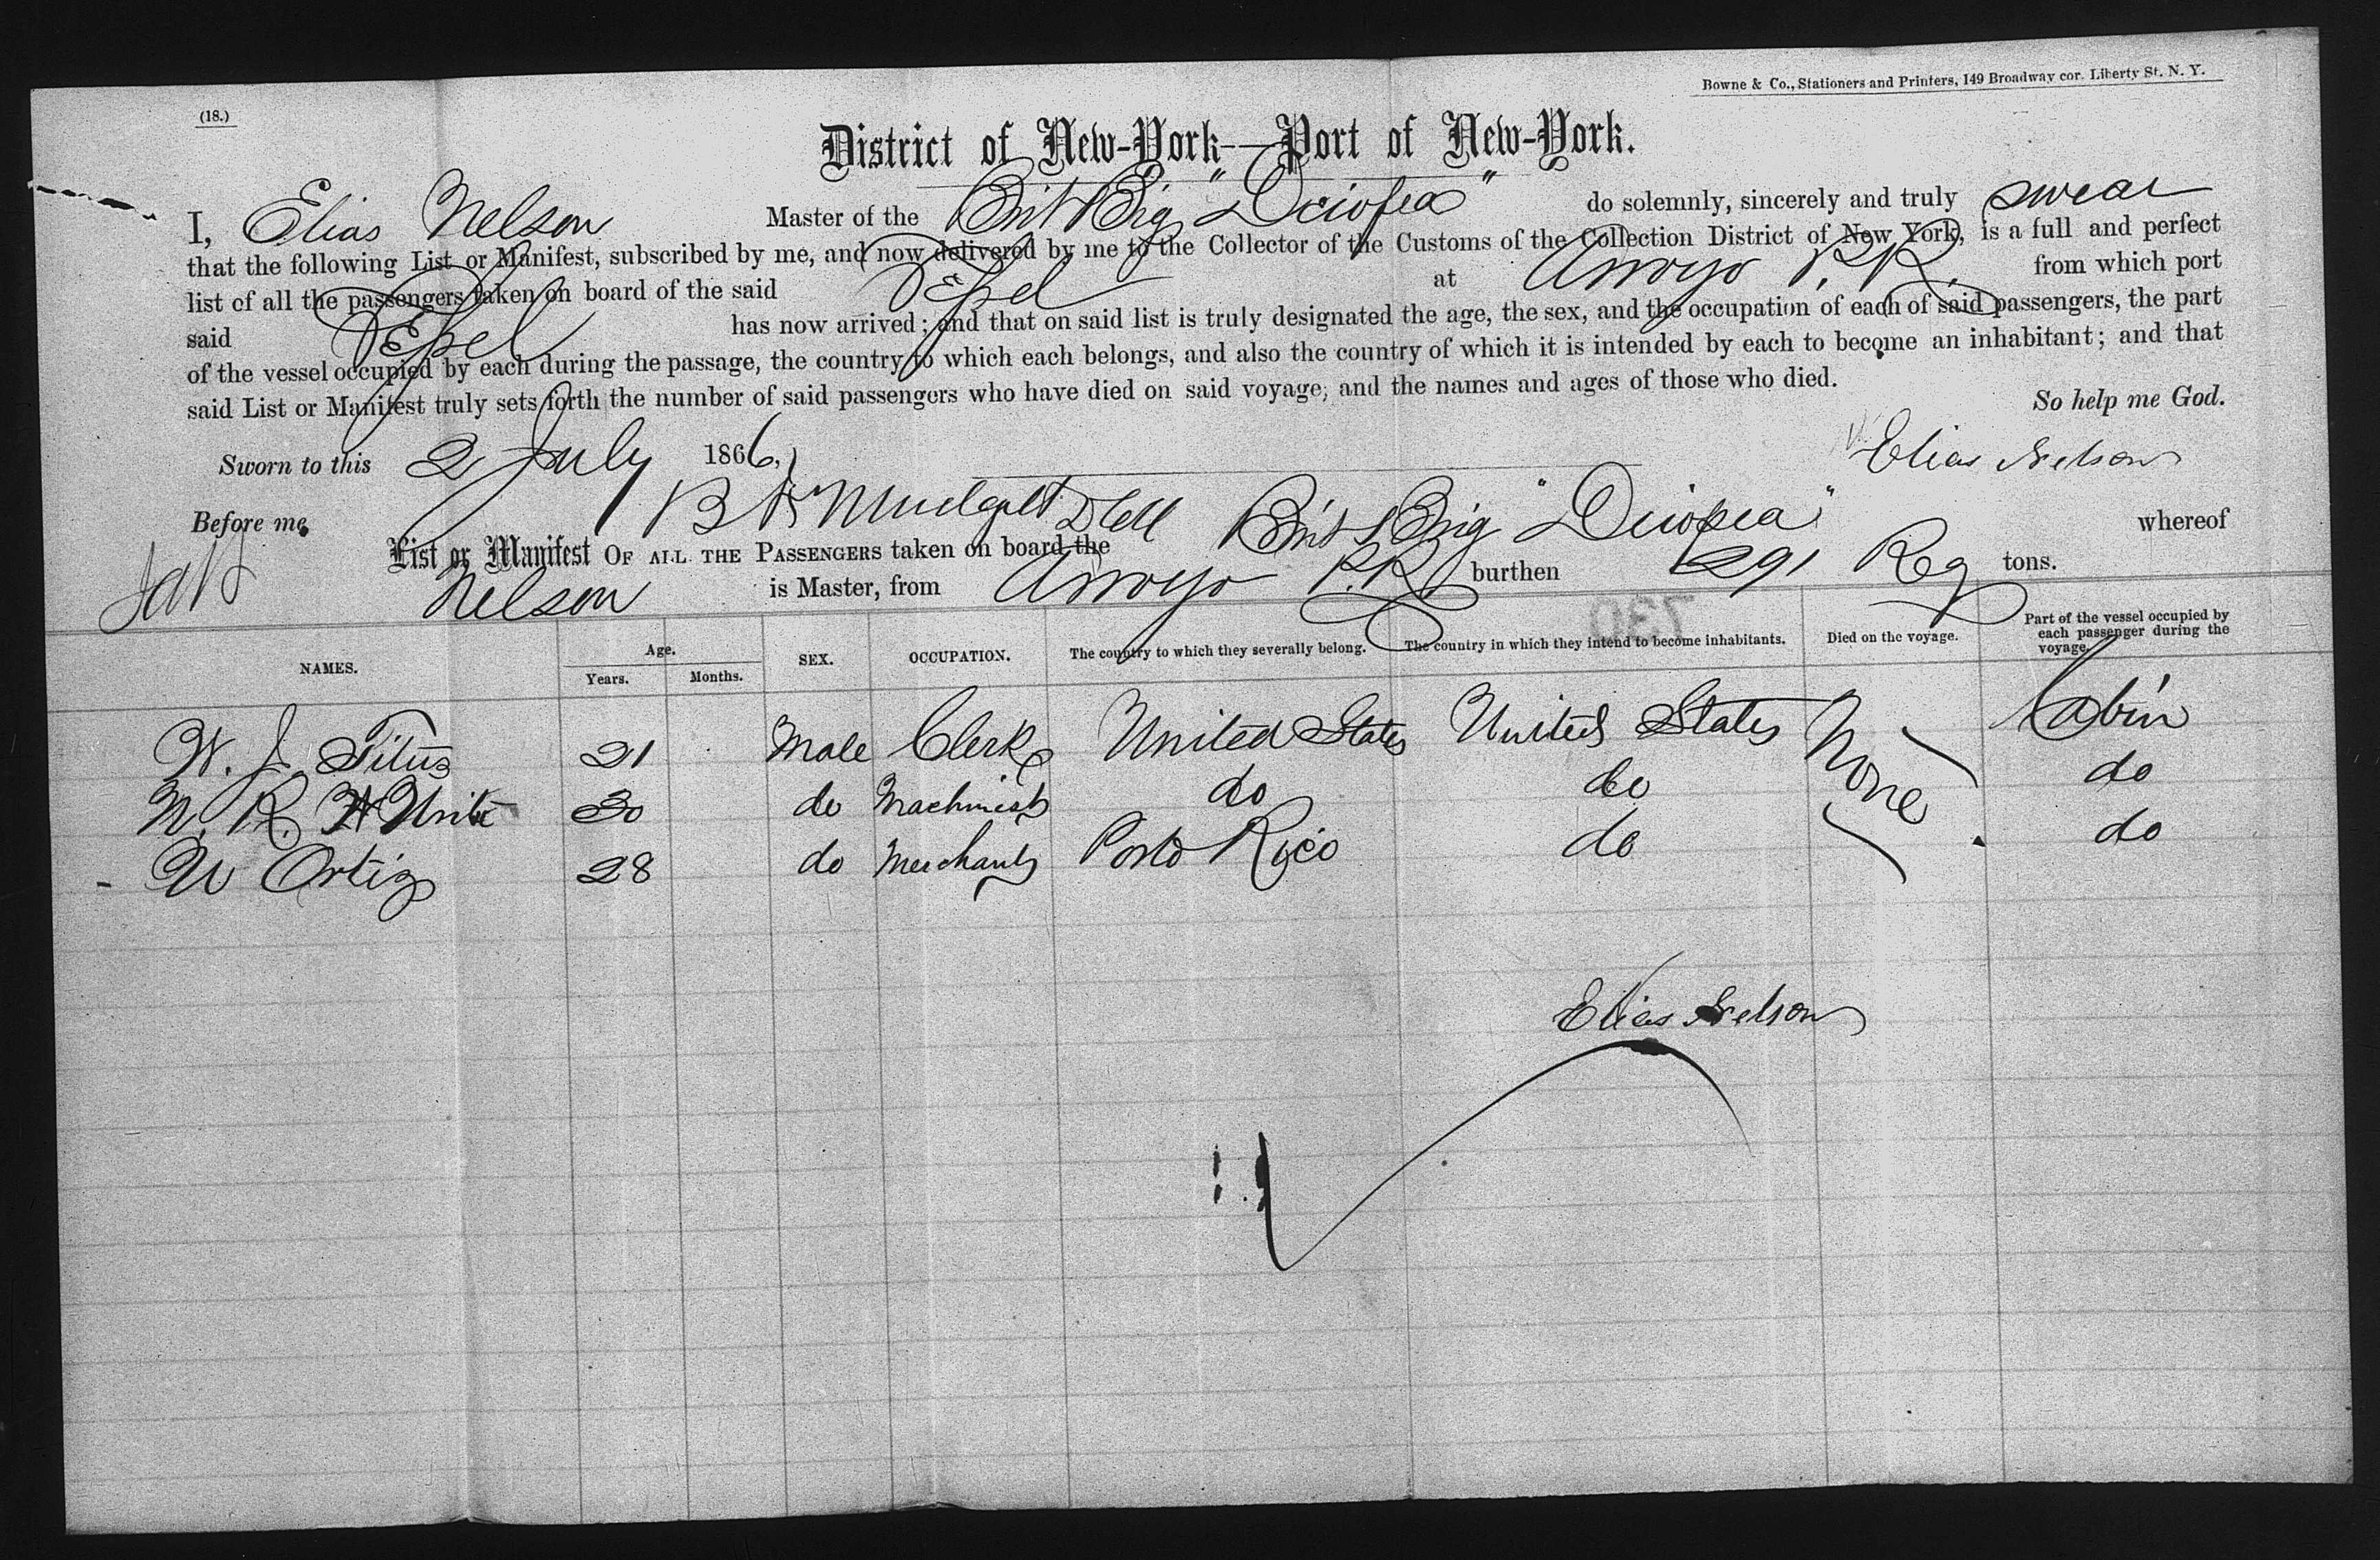 Bowne & Co., Stationers and Printers, 149 Broadway cor. Liberty St. N. Y.
(18.)
District of New-York—Port of New-York.
I, Elias Nelson Master of the Brit Brig "Deiopea" do solemnly, sincerely and truly swear
that the following List or Manifest, subscribed by me, and now delivered by me to the Collector of the Customs of the Collection District of New York, is a full and perfect
list of all the passengers taken on board of the said Vessel at Arroyo P.R. from which port
said Vessel has now arrived; and that on said list is truly designated the age, the sex, and the occupation of each of said passengers, the part
of the vessel occupied by each during the passage, the country to which each belongs, and also the country of which it is intended by each to become an inhabitant; and that
said List or Manifest truly sets forth the number of said passengers who have died on said voyage, and the names and ages of those who died.
So help me God.
Sworn to this 2 July 1866,
Elias Nelson
Before me,
List or Manifest OF ALL THE PASSENGERS taken on board the Brit Brig "Deiopea" whereof
Nelson is Master, from Arroyo P.R. burthen 291 Reg tons.
730
NAMES. Age. Years. Months. SEX. OCCUPATION. The country to which they severally belong. The country in which they intend to become inhabitants. Died on the voyage. Part of the vessel occupied by each passenger during the voyage.
W. J. Titus 21 Male Clerk United States United States None Cabin
N. R. 30 do Machinist do do do
W Ortiz 28 do Merchant Porto Rico do do
Elias Nelson